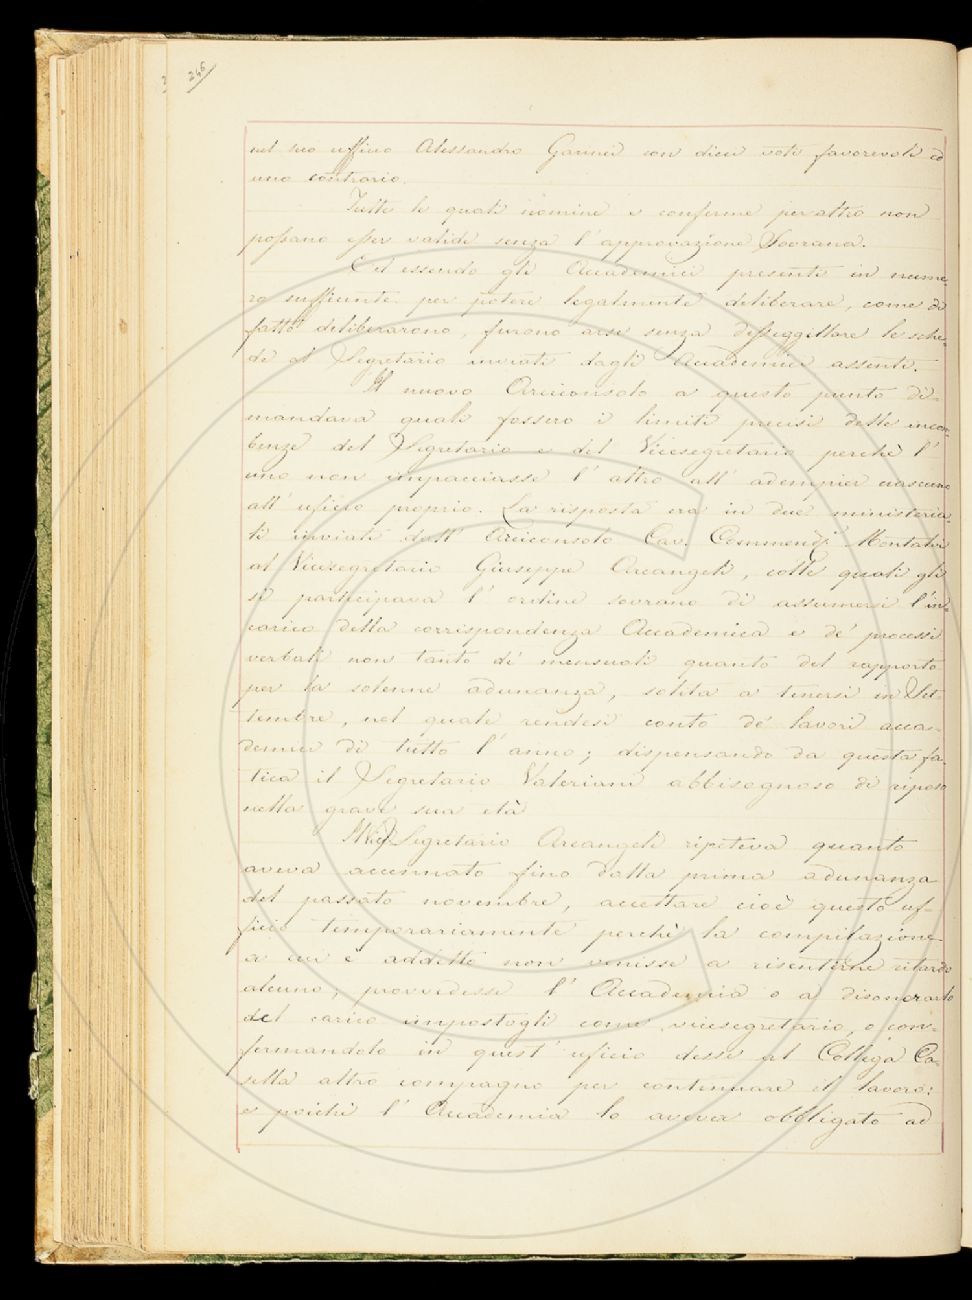 246
nel suo uffizio Alessandro Garinei con dieci voti favorevoli ed
uno contrario.
Tutte le quali nomine e conferme per altro non
possano esser valide senza l' approvazione Sovrana.
Ed essendo gli Accademici presenti in nume-
ro sufficiente per potere legalmente deliberare, come di
fatto deliberarono, furono arse senza dissuggellare le sche-
de al Segretario inviate dagli Accademici assenti.
Il nuovo Arciconsolo a questo punto di-
mandava quali fossero i limiti precisi delle incon-
benze del Segretario e del Vicesegretario perchè l'
uno non impacciasse l' altro all' adempier ciascuno
all' uficio proprio. La risposta era in due ministeria-
li inviati dall' Arciconsolo Cav. Commend. Montalvi
al Vicesegretario Giuseppe Arcangeli, colle quali gli
si participava l' ordine sovrano di assumersi l'in-
carico della corrispondenza Accademica e de' processi
verbali non tanto di mensuali quanto del rapporto
per la solenne adunanza, solita a tenersi in Set-
tembre, nel quale rendesi conto de' lavori acca-
demici di tutto l' anno; dispensando da questa fa-
tica il Segretario Valeriani abbisognoso di riposo
nella grave sua età
Il Vice Segretario Arcangeli ripeteva quanto
aveva accennato fino dalla prima adunanza
del passato novembre, accettare cioè questo uf-
ficio temporariamente perchè la compilazione
a cui è addetto non venisse a risentirne ritardo
alcuno, provvedesse l' Accademia o a disonerarlo
del carico impostogli come vicesegretario, o con-
fermandolo in quest' uficio desse al Collega Ca-
sella altro compagno per continuare il lavoro:
e poichè l' Accademia lo aveva obbligato ad